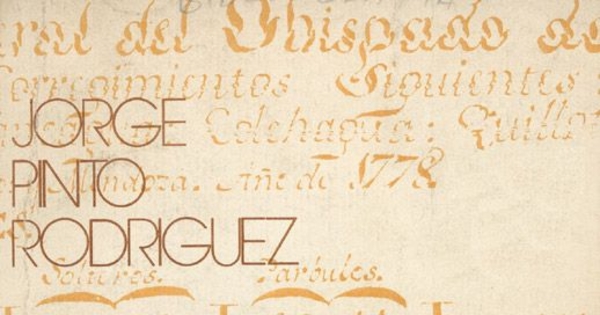 ral del Obispado de
Corregimientos Siguientes
JORGE
Colchagua: Quillot
PINTO
Mendoza. Año de 1778
RODRIGUEZ
Solteros. Parbulos.